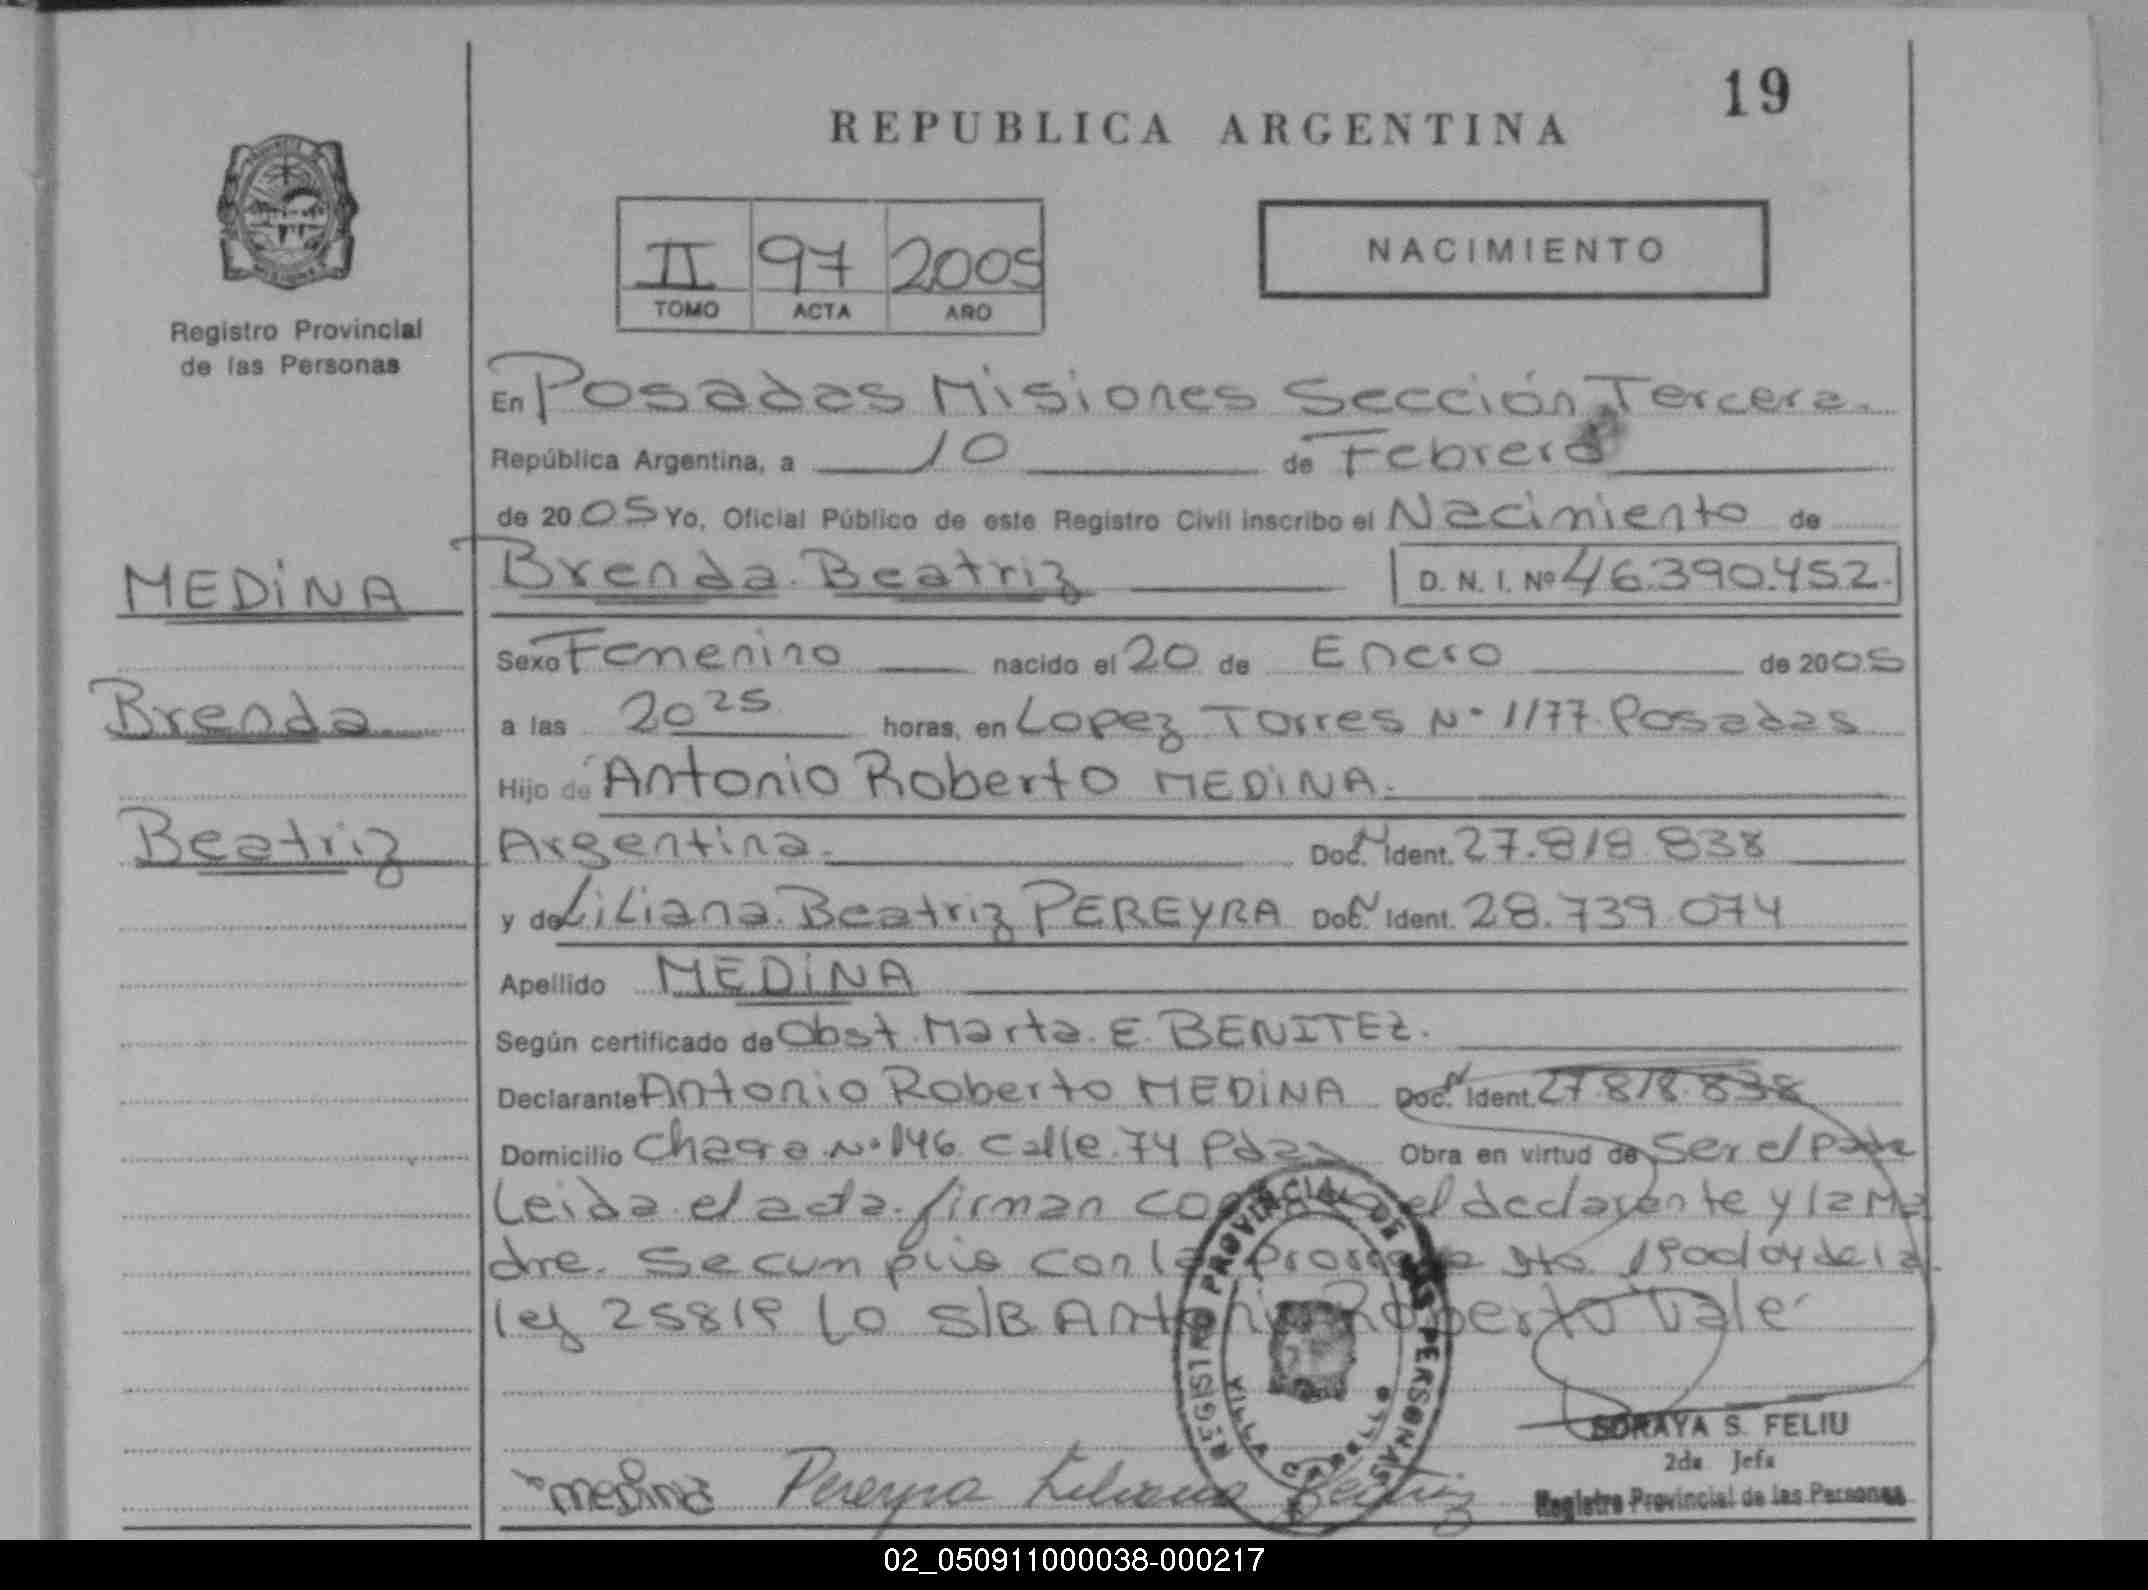 19
REPUBLICA ARGENTINA
II 97 2005
TOMO ACTA AÑO
NACIMIENTO
Registro Provincial
de las Personas
En Posadas Misiones Sección Tercera.
República Argentina, a 10 de Febrero
de 2005 Yo, Oficial Público de este Registro Civil inscribo el Nacimiento de
MEDINA Brenda Beatriz D. N. I. Nº 46.390.452.
Sexo Femenino nacido el 20 de Enero de 2005
Brenda a las 20 25 horas, en Lopez Torres Nº 1177 Posadas
Hijo de Antonio Roberto MEDINA.
Beatriz Argentina. Doc. N Ident. 27.818.838
y de Liliana Beatriz PEREYRA Doc. N Ident. 28.739.074
Apellido MEDINA
Según certificado de Obst. Marta E. BENITEZ.
Declarante Antonio Roberto MEDINA Doc. N Ident. 27.818.838
Domicilio Chacra Nº 146 Calle 74 Pdas Obra en virtud de Ser el Padre
Leida el acta firman el declarante y la Ma
dre. Se cumplio con la 1900/04 de la
ley 25819 Lo S/B Antonio Roberto Vale
REGISTRO PROVINCIAL DE LAS PERSONAS
VILLA CABELLO
SORAYA S. FELIU
2da Jefa
Registro Provincial de las Personas
Medina Pereyra Liliana Beatriz
02_050911000038-000217